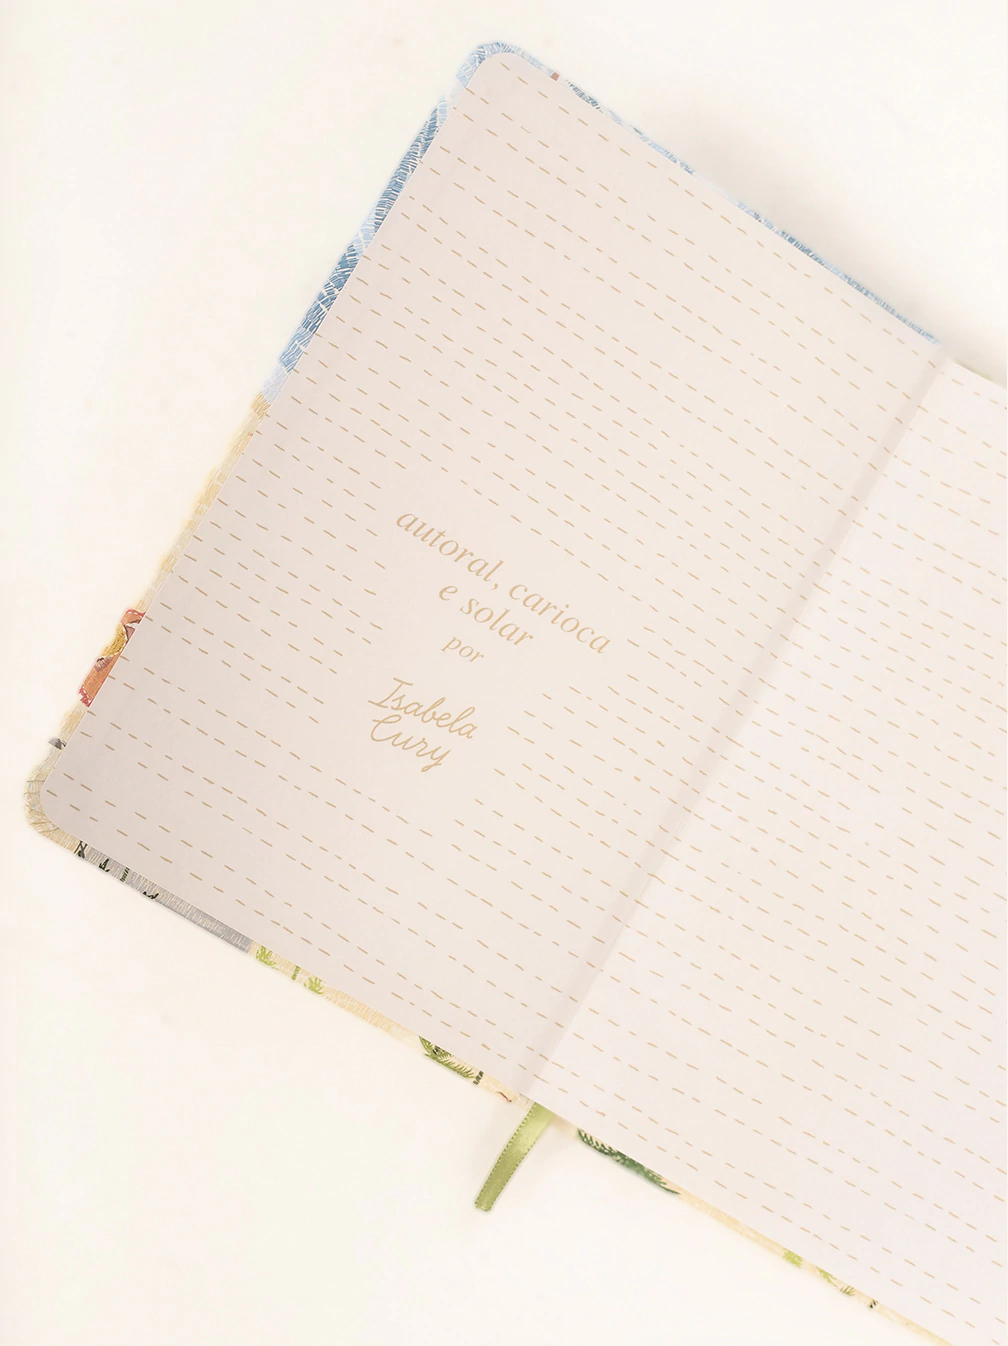 autoral, carioca
e solar
por
Isabela
Cury